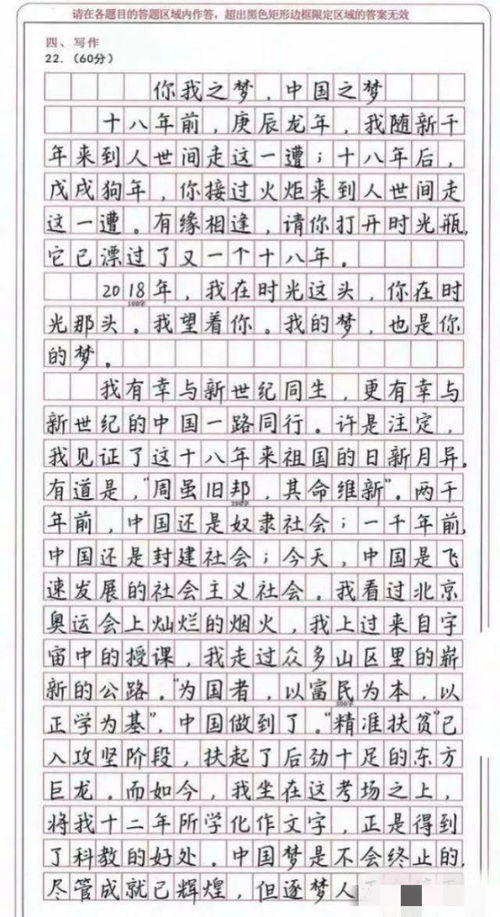 请在各题目的答题区域内作答，超出黑色矩形边框限定区域的答案无效
四、写作
22.（60分）
你我之梦，中国之梦
十八年前，庚辰龙年，我随新千
年来到人世间走这一遭；十八年后，
戊戌狗年，你接过火炬来到人世间走
这一遭。有缘相逢，请你打开时光瓶，
它已漂过了又一个十八年。
2018年，我在时光这头，你在时
100字
光那头。我望着你。我的梦，也是你
的梦。
我有幸与新世纪同生，更有幸与
新世纪的中国一路同行。许是注定，
我见证了这十八年来祖国的日新月异。
有道是，“周虽旧邦，其命维新”。两千
200字
年前，中国还是奴隶社会；一千年前，
中国还是封建社会；今天，中国是飞
速发展的社会主义社会。我看过北京
奥运会上灿烂的烟火，我上过来自宇
宙中的授课，我走过众多山区里的崭
新的公路。“为国者，以富民为本，以
300字
正学为基”，中国做到了。“精准扶贫”已
入攻坚阶段，扶起了后劲十足的东方
巨龙。而如今，我坐在这考场之上，
将我十二年所学化作文字，正是得到
了科教的好处。中国梦是不会终止的，
尽管成就已辉煌，但逐梦人